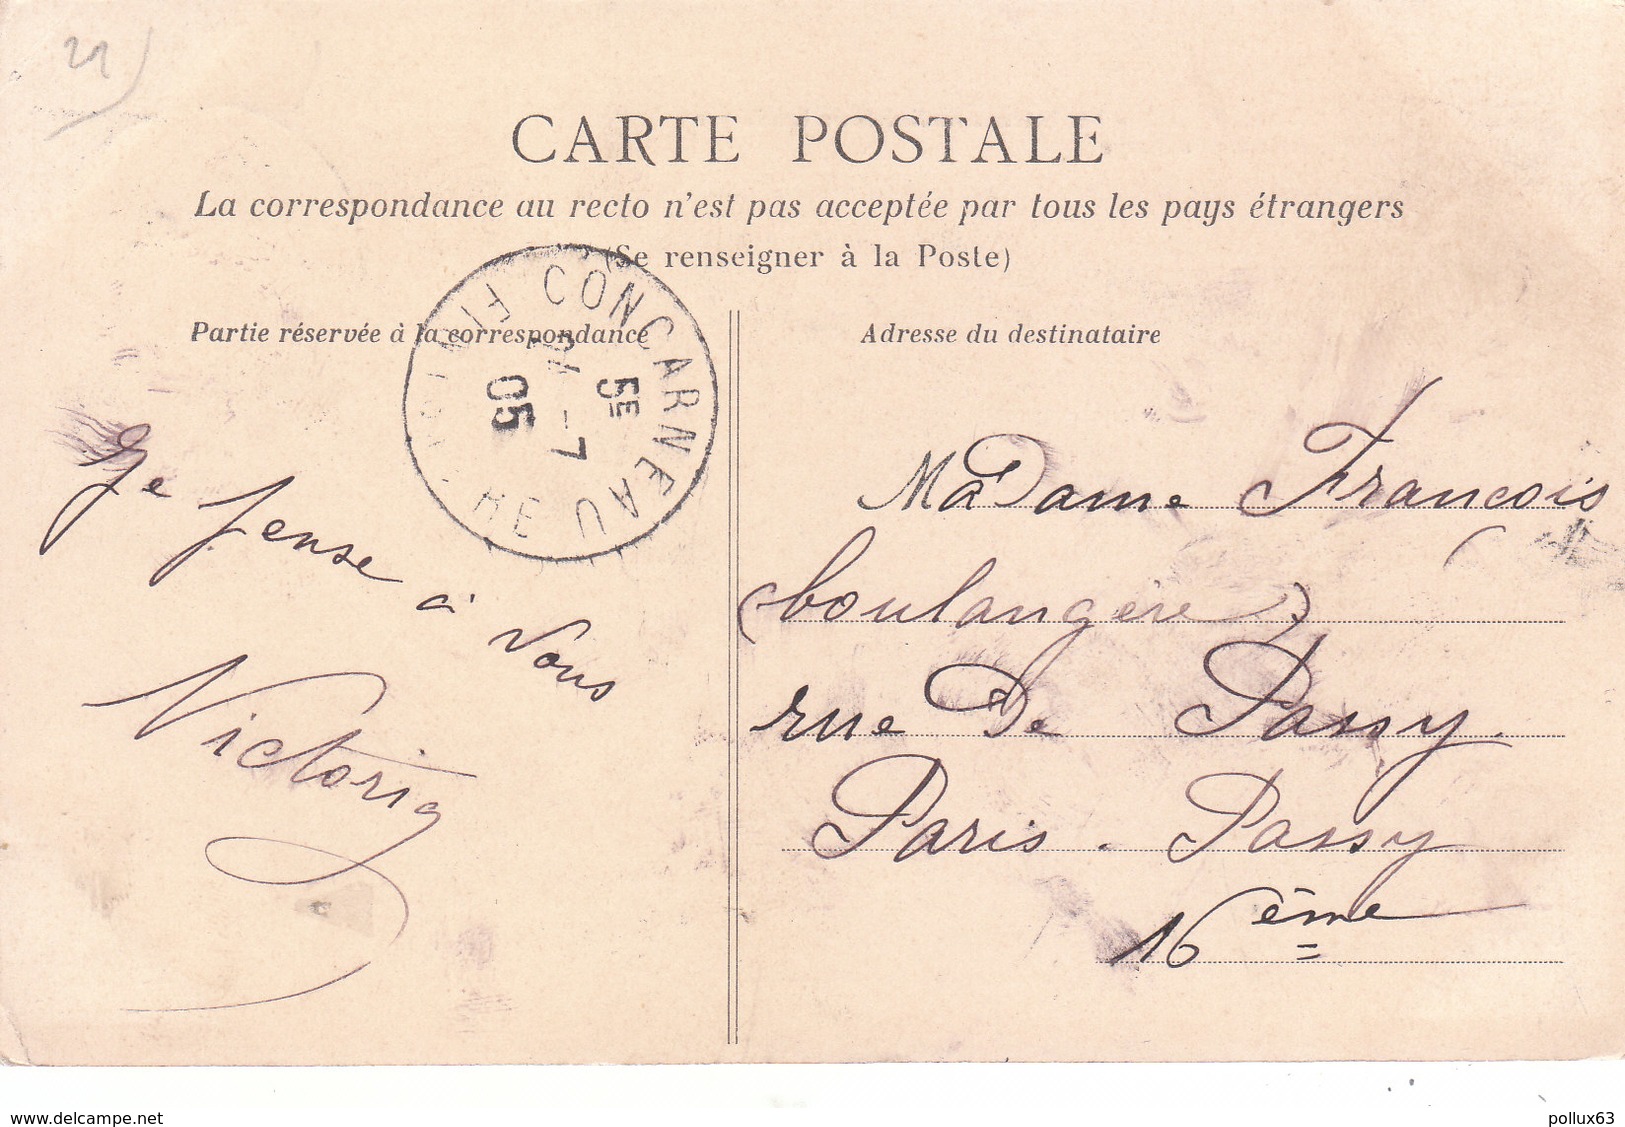 21
CARTE POSTALE
La correspondance au recto n'est pas acceptée par tous les pays étrangers
(Se renseigner à la Poste)
Partie réservée à la correspondance
Adresse du destinataire
CONCARNEAU
5E
-7
05
Je pense à Vous
Victoria
MaDame François
(boulangère)
rue De Passy.
Paris. Passy
16ème
www.delcampe.net
pollux63